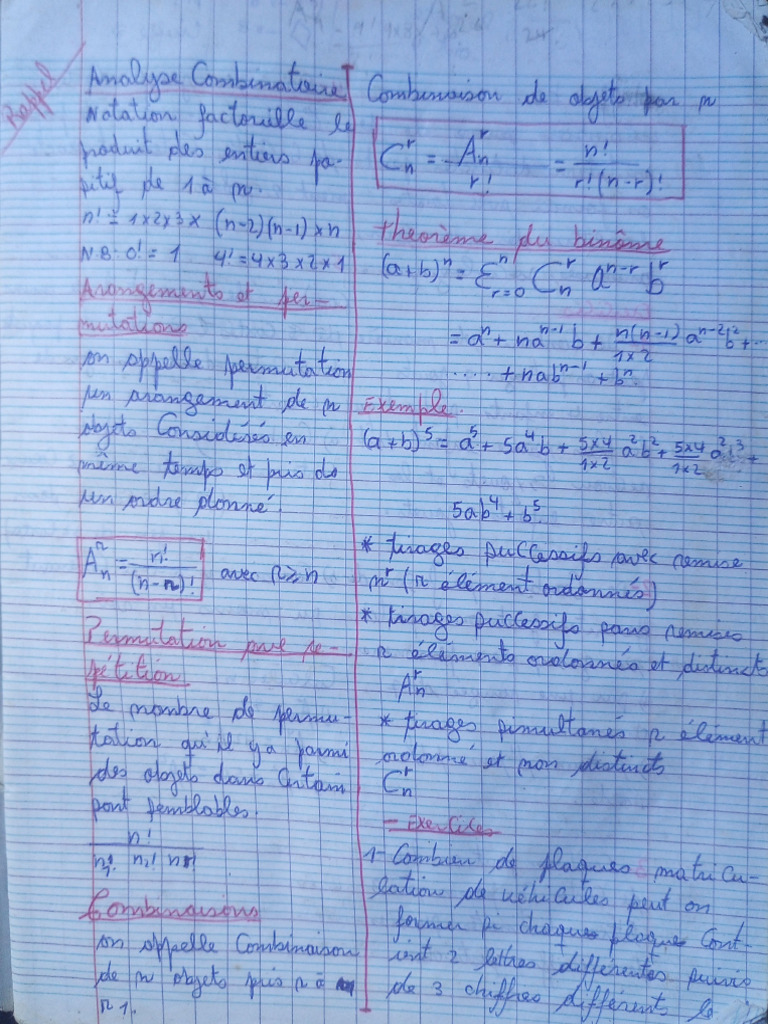 Rappel
Analyse Combinatoire
Notation factorielle le
produit des entiers po-
sitif de 1 à n.
n! = 1×2×3× (n-2)(n-1)×n
N.B: 0! = 1 4! = 4×3×2×1
Arangements et per-
mutations
on appelle permutation
un arangement de n
objets Considérés en
même temps et pris ds
un ordre donné.
A_n^r = n!/(n-r)! avec r≥n
Permutation avec ré-
pétition
Le nombre de permu-
tation qu'il y a parmi
des objets dans Certain
sont semblables.
n!/(n₁! n₂! nr!)
Combinaisons
on appelle Combinaison
de n objets pris r à
r 1.
Combinaison de objets par n
C_n^r = A_n^r/r! = n!/(r!(n-r)!)
theorème du binôme
(a+b)^n = Σ_{r=0}^n C_n^r a^{n-r} b^r
= a^n + na^{n-1}b + n(n-1)/1×2 a^{n-2}b² + ...
..... + nab^{n-1} + b^n.
Exemple.
(a+b)^5 = a^5 + 5a^4b + 5×4/1×2 a²b² + 5×4/1×2 a²b³ +
5ab^4 + b^5.
* tirages successifs avec remise
n^r (r élément ordonnés)
* tirages successifs sans remises
r éléments ordonnés et distincts
A_n^r
* tirages simultanés r élément
ordonné et non distincts
C_n^r
- Exercices
1- Combien de plaques matricu-
lation de véhicules peut on
former si chaques plaques Cont-
ient 2 lettres différentes suivis
de 3 chiffres différents le